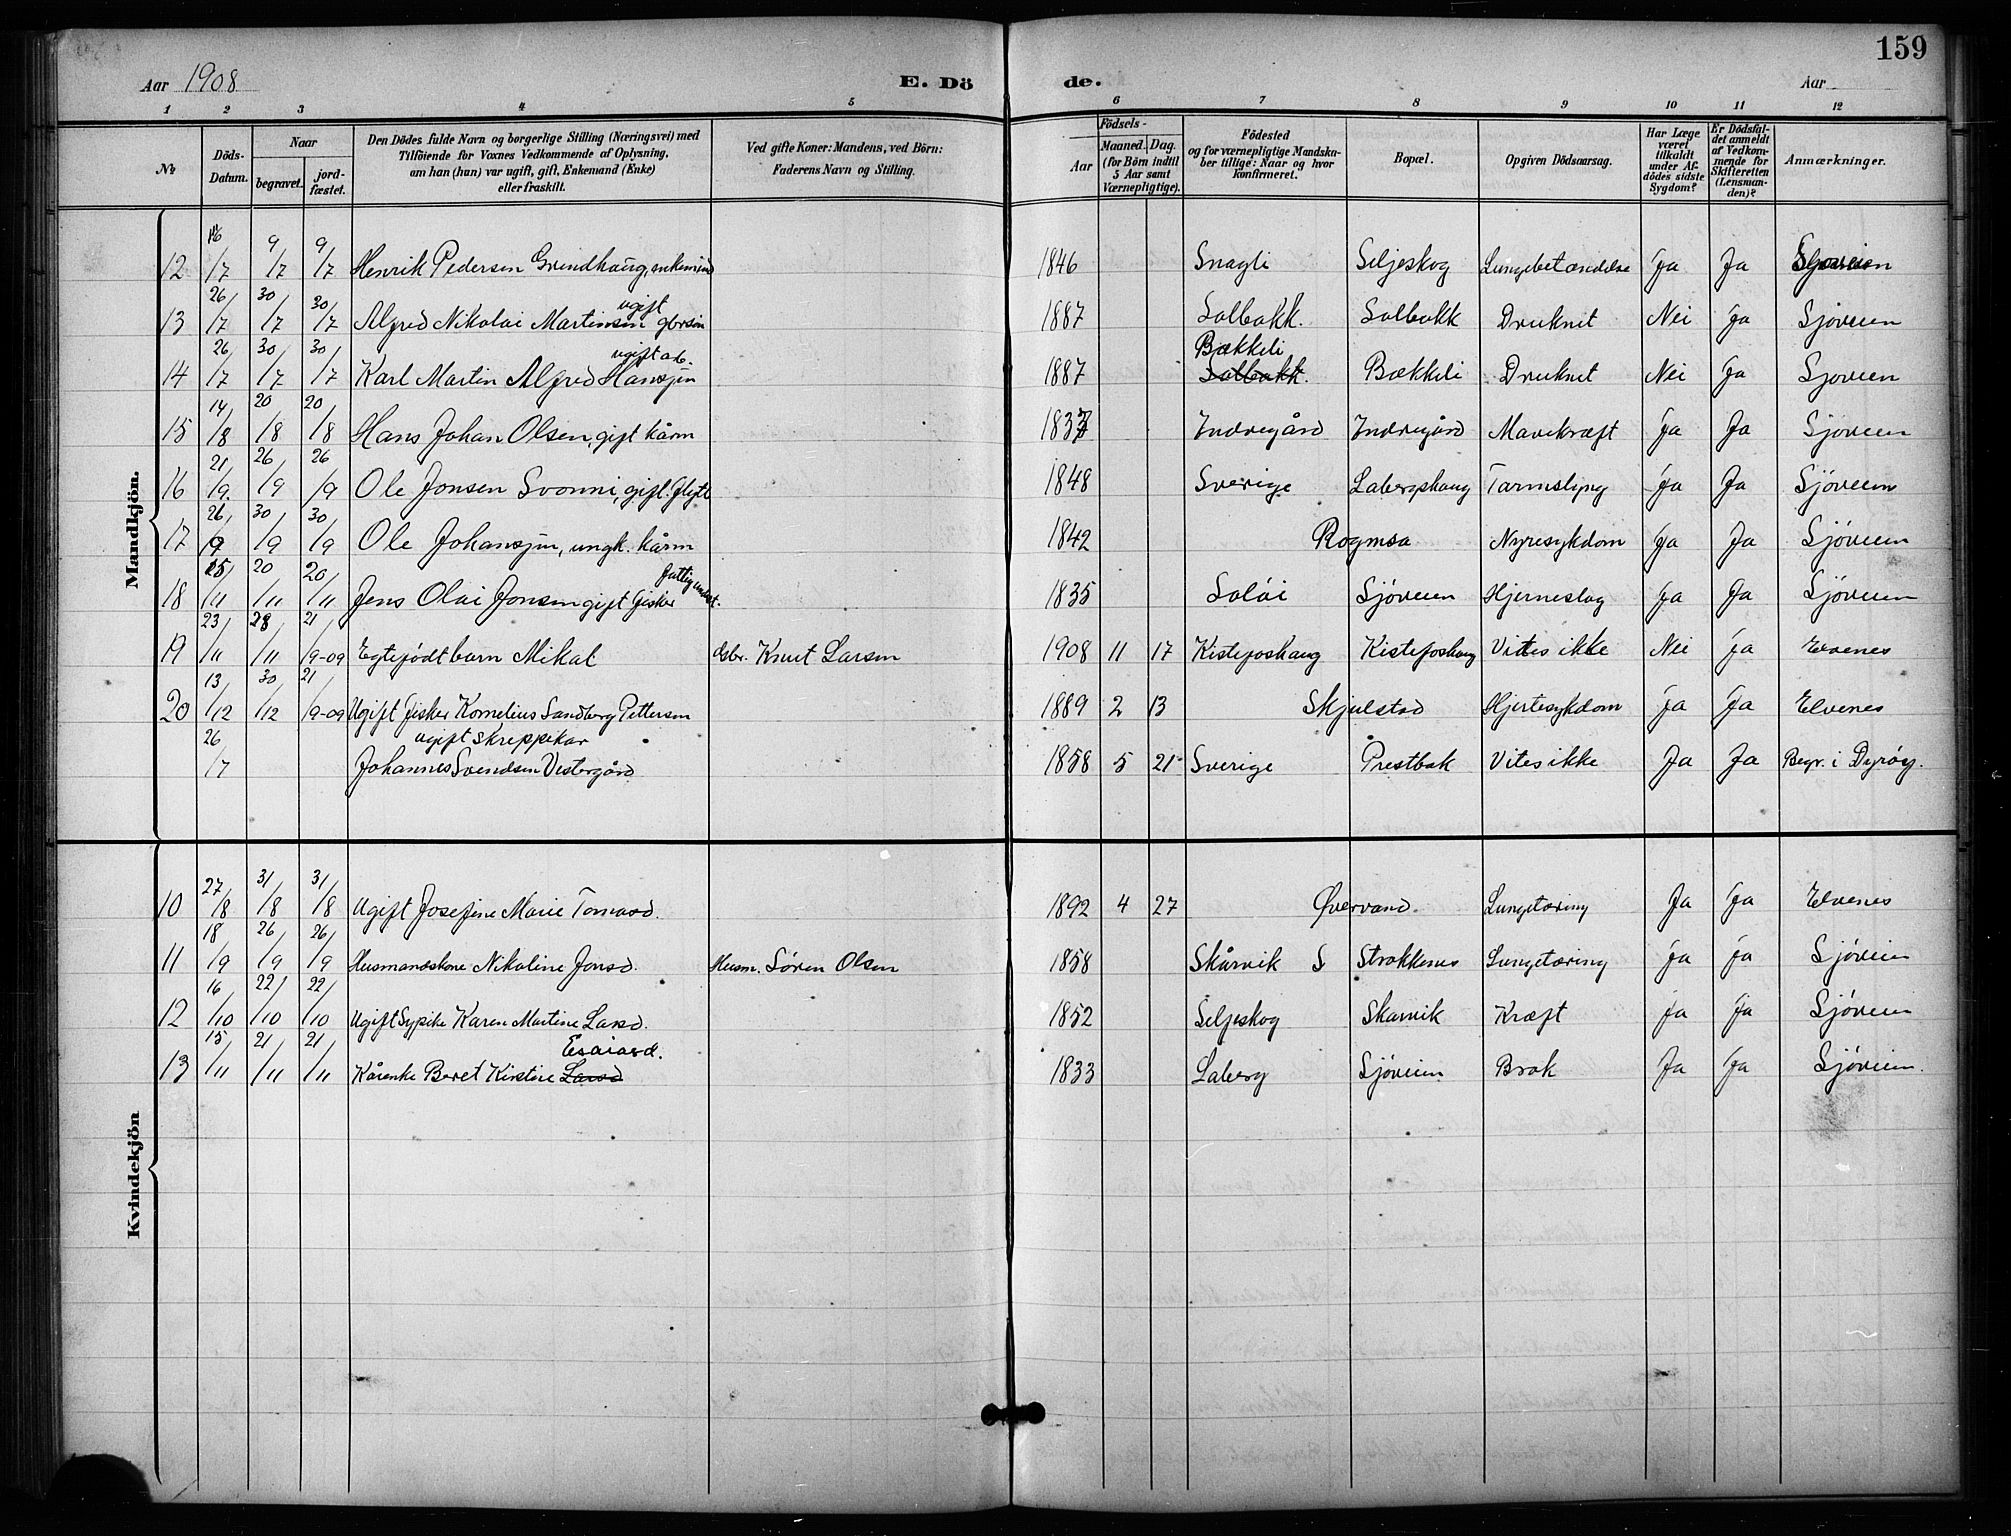 159
Aar 1908 E. Dö de. Aar
1 2 3 4 5 6 7 8 9 10 11 12
No Döds-Datum. Naar begravet. jord-fæstet. Den Dödes fulde Navn og borgerlige Stilling (Næringsvei) med Tilföiende for Voxnes Vedkommende af Oplysning, om han (hun) var ugift, gift, Enkemand (Enke) eller fraskilt. Ved gifte Koner: Mandens, ved Börn: Faderens Navn og Stilling. Aar Födsels- Maaned. Dag. (for Börn indtil 5 Aar samt Værnepligtige). Födested og for værnepligtige Mandska-ber tillige: Naar og hvor konfirmeret. Bopæl. Opgiven Dödsaarsag. Har Læge været tilkaldt under Af-dödes sidste Sygdom? Er Dödsfal-det anmeldt af Vedkom-mende for Skifteretten (Lensman-den)? Anmærkninger.
Mandkjön.
12 /7 9/7 9/7 Henrik Pedersen Grindhaug, enkemand 1846 Snagli Seljeskog Lungebetændelse Ja Ja Sjøveien
13 26/7 30/7 30/7 Alfred Nikolai Martinsen ugift gbrsøn 1887 Solbakk. Solbakk Druknet Nei Ja Sjöveien
14 26/7 30/7 30/7 Karl Martin Alfred Hansen ugift arb. 1887 Bækkeli Solbakk. Bækkeli Druknet Nei Ja Sjoveien
15 14/8 20/8 20/8 Hans Johan Olsen, gift kårm 1837 Indregård Indregård Mavekræft Ja Ja Sjoveien
16 21/9 26/9 26/9 Ole Jonsen Svonni, gift. 1848 Sverige Labergshaug Tarmslyng Ja Ja Sjöveien
17 26/9 30/9 30/9 Ole Johansen, ungk. kårm 1842 Rogmsa Nyresykdom Ja Ja Sjöveien
18 15/11 20/11 20/11 Jens Olai Jonsen gift fisker fattigunderst. 1835 Soløi Sjöveien Hjerneslag Ja Ja Sjöveien
19 23/11 28/11 21/9-09 Egtefödt barn Mikal gbr. Knut Larsen 1908 11 17 Kistefoshaug Kistefoshaug Vites ikke Nei Ja Elvenes
20 13/12 30/12 21/9-09 Ugift fisker Kornelius Sandberg Pettersen 1889 2 13 Skjelstad Hjertesykdom Ja Ja Elvenes
26/7 ugift skreppekar Johannes Svendsen Vestergård 1858 5 21 Sverige Prestbak Vites ikke Ja Ja Begr. i Dyröy.
Kvindekjön
10 27/8 31/8 31/8 Ugift Josefine Marie Tomasd. 1892 4 27 Øvervand. Lungetæring Ja Ja Elvenes
11 18/9 26/9 26/9 Husmandskone Nikoline Jonsd. Husm. Sören Olsen 1858 Skårvik S Strokkenes Lungetæring Ja Ja Sjöveien
12 16/10 22/10 22/10 Ugift Sypike Karen Martine Larsd. 1852 Seljeskog Skarvik Kræft Ja Ja Sjöveien
13 15/11 21/11 21/11 Kårenke Beret Kirstine Larsd Esaiasd. 1833 Laberg Sjöveien Brok Ja Ja Sjöveien.